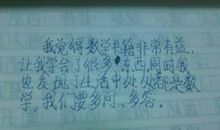 我觉得数学书籍非常有益,
让我学会了很多东西同时我
也发现了生活中处处都是数
学,我们要多问、多答。